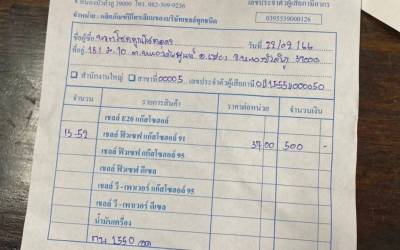 จ.หนองบัวลำภู 39000 โทร. 082-309-9236
เลขประจำตัวผู้เสียภาษีอากร
0395539000126
จำหน่าย : ผลิตภัณฑ์ปิโตรเลียมของบริษัทเชลล์ทุกชนิด
ชื่อผู้ซื้อ
วันที่ 22/09/66
ที่อยู่ 181 ม.10 39000
สำนักงานใหญ่ สาขาที่ 00005 เลขประจำตัวผู้เสียภาษี
จำนวน รายการสินค้า ราคาต่อหน่วย จำนวนเงิน
เชลล์ E20 แก๊สโซฮอล์
เชลล์ ฟิวเซฟ แก๊สโซฮอล์ 91
13.52 เชลล์ ฟิวเซฟ แก๊สโซฮอล์ 95 37.00 500 -
เชลล์ ฟิวเซฟ ดีเซล
เชลล์ วี - เพาเวอร์ แก๊สโซฮอล์ 95
เชลล์ วี - เพาเวอร์ ดีเซล
น้ำมันเครื่อง
กน 1550